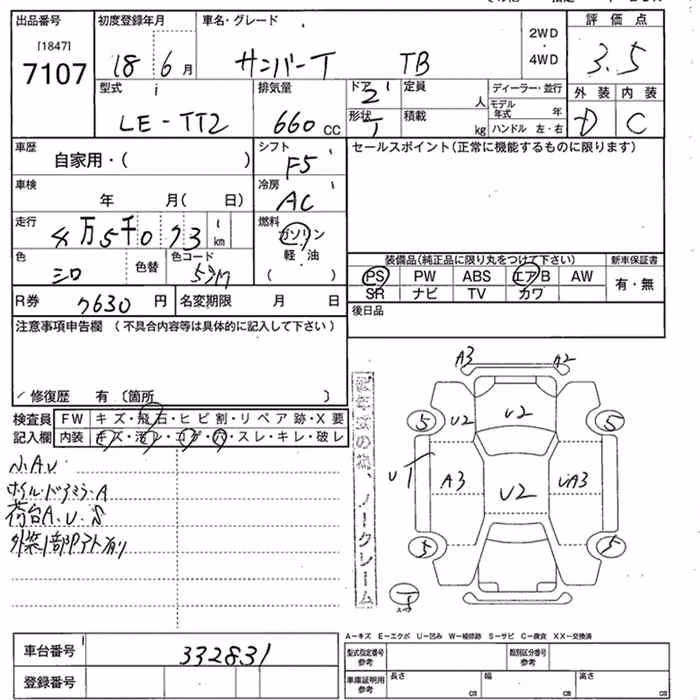 出品番号 初度登録年月 車名・グレード 評価点
[1847]
7107 18 6月 サンバーT TB 2WD・4WD 3.5
型式 排気量 ドア 定員 ディーラー・並行 外装 内装
LE-TT2 660cc 2 人 モデル年式 年 D C
形状 積載 kg ハンドル 左・右
車歴 シフト セールスポイント(正常に機能するものに限ります)
自家用・( ) F5
車検 冷房
年 月( 日) AC
走行 燃料
4万5千073km ガソリン
軽油
( )
色 色替 色コード 装備品(純正品に限り丸をつけて下さい) 新車保証書
シロ PS PW ABS エアB AW 有・無
SR ナビ TV カワ
R券 7630円 名変期限 月 日 後日品
注意事項申告欄(不具合内容等は具体的に記入して下さい)
修復歴 有(箇所 )
検査員 FW キズ・飛石・ヒビ割・リペア跡・X要
記入欄 内装 キズ・汚レ・コゲ・穴・スレ・キレ・破レ
小A.U
ホイル・ドアミラーA
荷台A.U.S
ノークレーム
A3 A2
5 U2 U2 5
U1 A3 U2 UA3
5 5
A-キズ E-エクボ U-凹み W-補修跡 S-サビ C-腐食 XX-交換済
車台番号 332831
登録番号
型式指定番号 参考 類別区分番号 参考
車庫証明用 参考 長さ cm 幅 cm 高さ cm